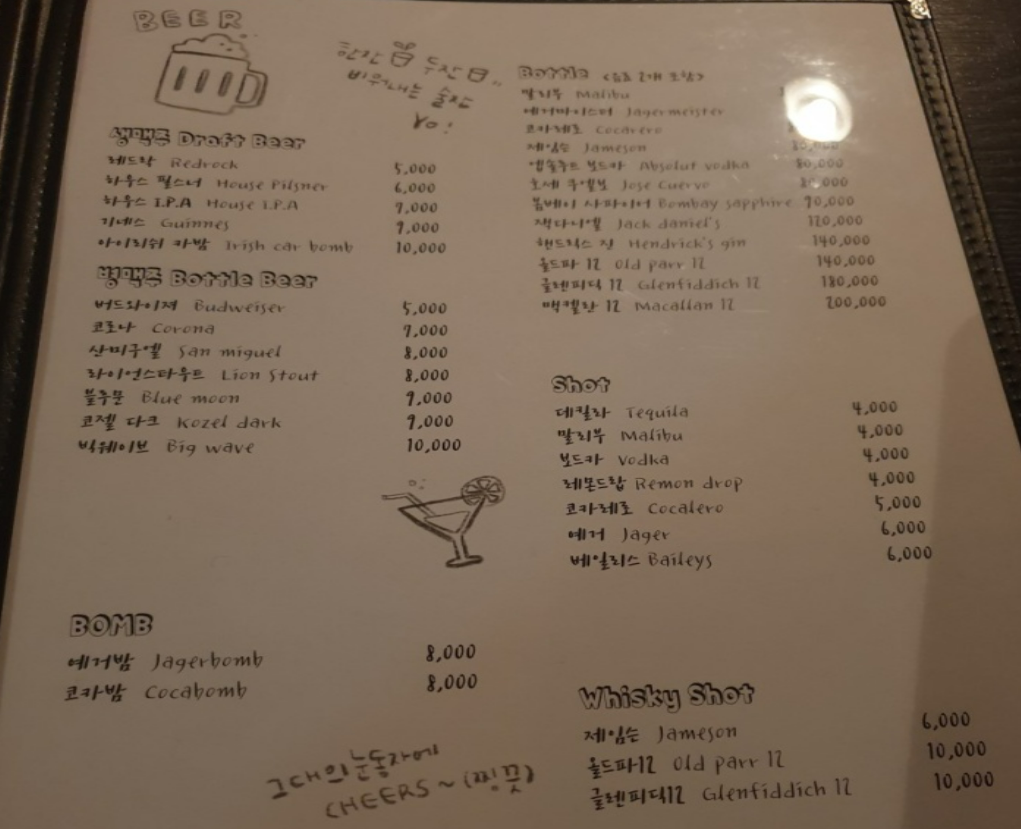 BEER
한잔 두잔
비워내는 술잔
Yo!
생맥주 Draft Beer
레드락 Redrock 5,000
하우스 필스너 House Pilsner 6,000
하우스 I.P.A House I.P.A 7,000
기네스 Guinnes 9,000
아이리쉬 카밤 Irish car bomb 10,000
병맥주 Bottle Beer
버드와이저 Budweiser 5,000
코로나 Corona 7,000
산미구엘 San miguel 8,000
라이언스타우트 Lion Stout 8,000
블루문 Blue moon 9,000
코젤 다크 Kozel dark 9,000
빅웨이브 Big wave 10,000
BOMB
예거밤 Jagerbomb 8,000
코카밤 Cocabomb 8,000
그대의 눈동자에
CHEERS~(찡끗)
Bottle <음료 2개 포함>
말리부 Malibu
예거마이스터 Jagermeister
코카레로 Cocarero
제임슨 Jameson 80,000
앱솔루트 보드카 Absolut vodka 80,000
호세 쿠엘보 Jose Cuervo 80,000
봄베이 사파이어 Bombay sapphire 90,000
잭다니엘 Jack daniel's 120,000
핸드릭스 진 Hendrick's gin 140,000
올드파 12 Old parr 12 140,000
글렌피딕 12 Glenfiddich 12 180,000
맥켈란 12 Macallan 12 200,000
Shot
데킬라 Tequila 4,000
말리부 Malibu 4,000
보드카 Vodka 4,000
레몬드랍 Remon drop 4,000
코카레로 Cocalero 5,000
예거 Jager 6,000
베일리스 Baileys 6,000
Whisky Shot
제임슨 Jameson 6,000
올드파12 Old parr 12 10,000
글렌피딕12 Glenfiddich 12 10,000